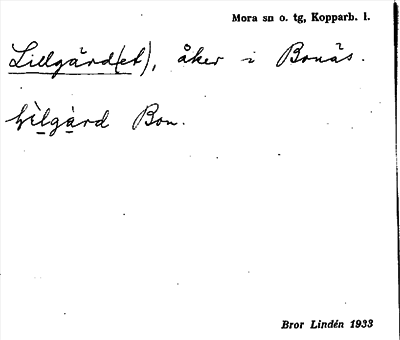 Mora sn o. tg, Kopparb. l.
Lillgärd(et), åker i Bonäs.
lìlgàrd Bon.
Bror Lindén 1933